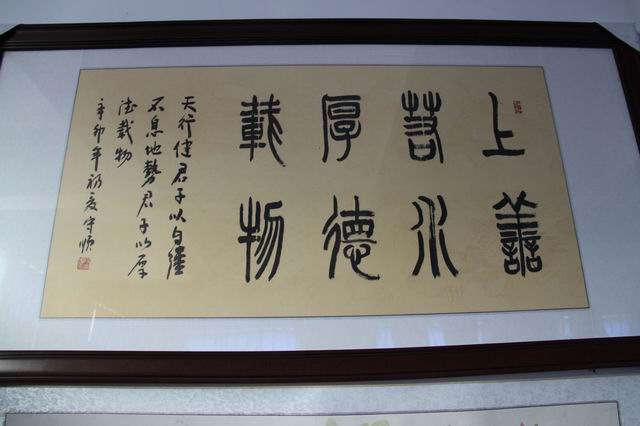 上善
若水
厚德
載物
天行健君子以自彊
不息地勢君子以厚
德載物
辛卯年初夏守順